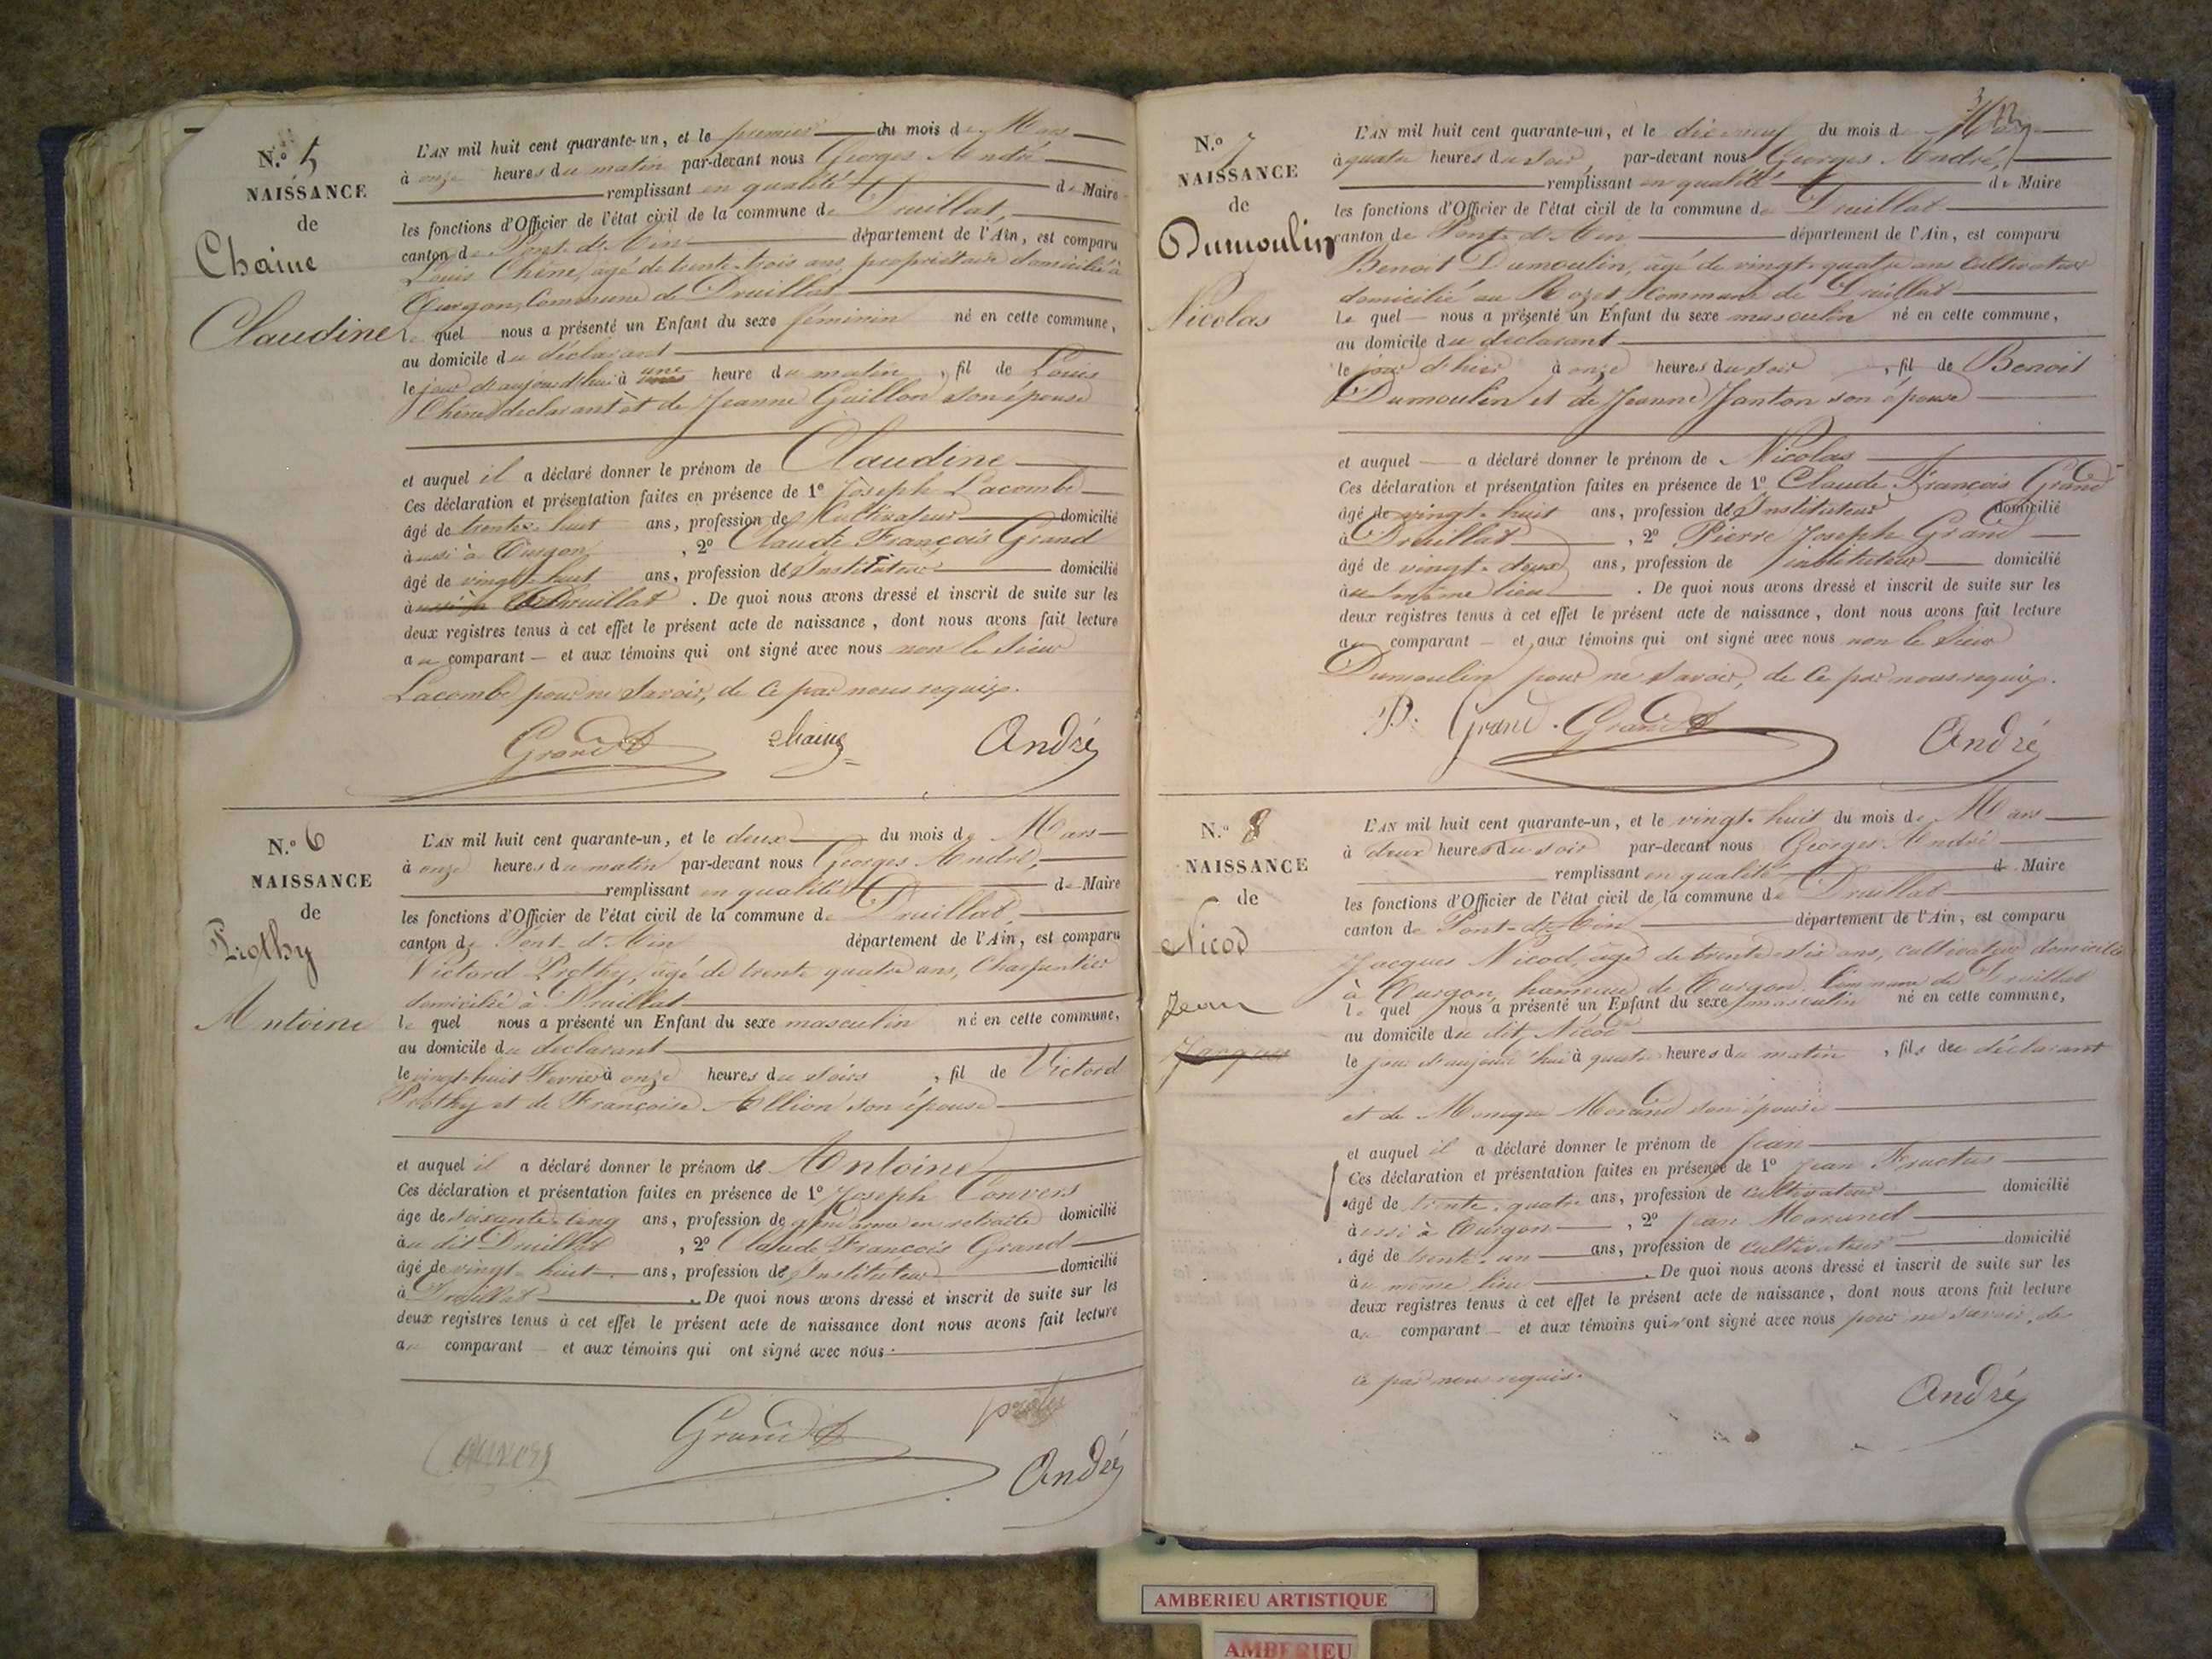 N.° 5
NAISSANCE
de
Chaine
Claudine
L'AN mil huit cent quarante-un, et le premier du mois de Mars
à onze heures du matin par-devant nous Georges André
remplissant en qualité de Maire
les fonctions d'Officier de l'état civil de la commune de Druillat,
canton de Pont-d'Ain département de l'Ain, est comparu
Louis Chêne, âgé de trente-trois ans, propriétaire domicilié à
Turgon, Commune de Druillat
le quel nous a présenté un Enfant du sexe féminin né en cette commune,
au domicile du déclarant
le jour d'aujourd'hui à une heure du matin, fil de Louis
Chêne déclarant et de Jeanne Guillon son épouse
et auquel il a déclaré donner le prénom de Claudine
Ces déclaration et présentation faites en présence de 1° Joseph Lacombe
âgé de trente-huit ans, profession de Cultivateur domicilié
à aussi à Turgon, 2° Claude François Grand
âgé de vingt-huit ans, profession d'Instituteur domicilié
à Druillat. De quoi nous avons dressé et inscrit de suite sur les
deux registres tenus à cet effet le présent acte de naissance, dont nous avons fait lecture
au comparant — et aux témoins qui ont signé avec nous non le sieur
Lacombe pour ne savoir, de ce par nous requis.
Grand chaine André
N.° 6
NAISSANCE
de
Prothy
Antoine
L'AN mil huit cent quarante-un, et le deux du mois de Mars
à onze heures du matin par-devant nous Georges André,
remplissant en qualité de Maire
les fonctions d'Officier de l'état civil de la commune de Druillat,
canton de Pont-d'Ain département de l'Ain, est comparu
Victord Prothy, âgé de trente quatre ans, Charpentier
domicilié à Druillat
le quel nous a présenté un Enfant du sexe masculin né en cette commune,
au domicile du déclarant
le vingt-huit Fevrier à onze heures du soir, fil de Victord
Prothy et de Françoise Allion son épouse
et auquel il a déclaré donner le prénom de Antoine
Ces déclaration et présentation faites en présence de 1° Joseph Convers
âgé de soixante-cinq ans, profession de gendarme en retraite domicilié
à au dit Druillat, 2° Claude François Grand
âgé de vingt-huit ans, profession d'Instituteur domicilié
à Druillat. De quoi nous avons dressé et inscrit de suite sur les
deux registres tenus à cet effet le présent acte de naissance dont nous avons fait lecture
au comparant — et aux témoins qui ont signé avec nous.
Convers Grand prothy André
N.° 7
NAISSANCE
de
Dumoulin
Nicolas
L'AN mil huit cent quarante-un, et le dix neuf du mois de Mars
à quatre heures du soir, par-devant nous Georges André,
remplissant en qualité de Maire
les fonctions d'Officier de l'état civil de la commune de Druillat
canton de Pont-d'Ain département de l'Ain, est comparu
Benoit Dumoulin, âgé de vingt-quatre ans Cultivateur
domicilié au Rozet Commune de Druillat
Le quel — nous a présenté un Enfant du sexe masculin né en cette commune,
au domicile du déclarant
le jour d'hier à onze heures du soir, fil de Benoit
Dumoulin et de Jeanne Janton son épouse
et auquel — a déclaré donner le prénom de Nicolas
Ces déclaration et présentation faites en présence de 1° Claude François Grand
âgé de vingt-huit ans, profession d'Instituteur domicilié
à Druillat, 2° Pierre Joseph Grand
âgé de vingt-deux ans, profession de instituteur domicilié
au même lieu. De quoi nous avons dressé et inscrit de suite sur les
deux registres tenus à cet effet le présent acte de naissance, dont nous avons fait lecture
au comparant — et aux témoins qui ont signé avec nous non le sieur
Dumoulin pour ne savoir, de ce par nous requis.
P. Grand. Grand André
N.° 8
NAISSANCE
de
Nicod
Jean
Jacques
L'AN mil huit cent quarante-un, et le vingt-huit du mois de Mars
à deux heures du soir par-devant nous Georges André
remplissant en qualité de Maire
les fonctions d'Officier de l'état civil de la commune de Druillat
canton de Pont-d'Ain département de l'Ain, est comparu
Jacques Nicod, âgé de trente six ans, cultivateur domicilié
à Turgon, hameau de Turgon, Commune de Druillat
le quel nous a présenté un Enfant du sexe masculin né en cette commune,
au domicile du dit Nicod
le jour d'aujourd'hui à quatre heures du matin, fils du déclarant
et de Monique Morand son épouse
et auquel il a déclaré donner le prénom de Jean
Ces déclaration et présentation faites en présence de 1° Jean Fructus
âgé de trente-quatre ans, profession de cultivateur domicilié
à aussi à Turgon, 2° Jean Morand
âgé de trente-un ans, profession de cultivateur domicilié
au même lieu. De quoi nous avons dressé et inscrit de suite sur les
deux registres tenus à cet effet le présent acte de naissance, dont nous avons fait lecture
au comparant — et aux témoins qui n'ont signé avec nous pour ne savoir, de
ce par nous requis.
André
AMBERIEU ARTISTIQUE
AMBERIEU